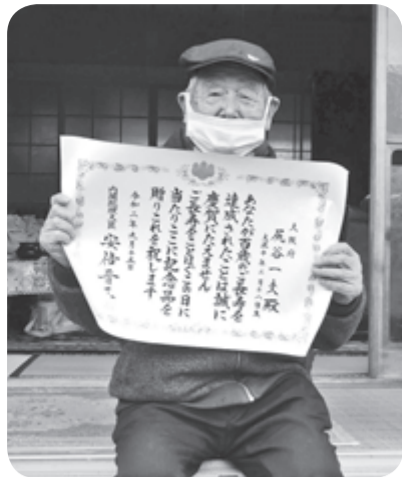 大阪府
尻谷一夫殿
あなたが百歳のご長寿を
達成されたことは誠に
慶賀にたえません
ご長寿をことほぐこの日に
当たりここに記念品を
贈りこれを祝します
令和二年九月十五日
内閣総理大臣 安倍晋三